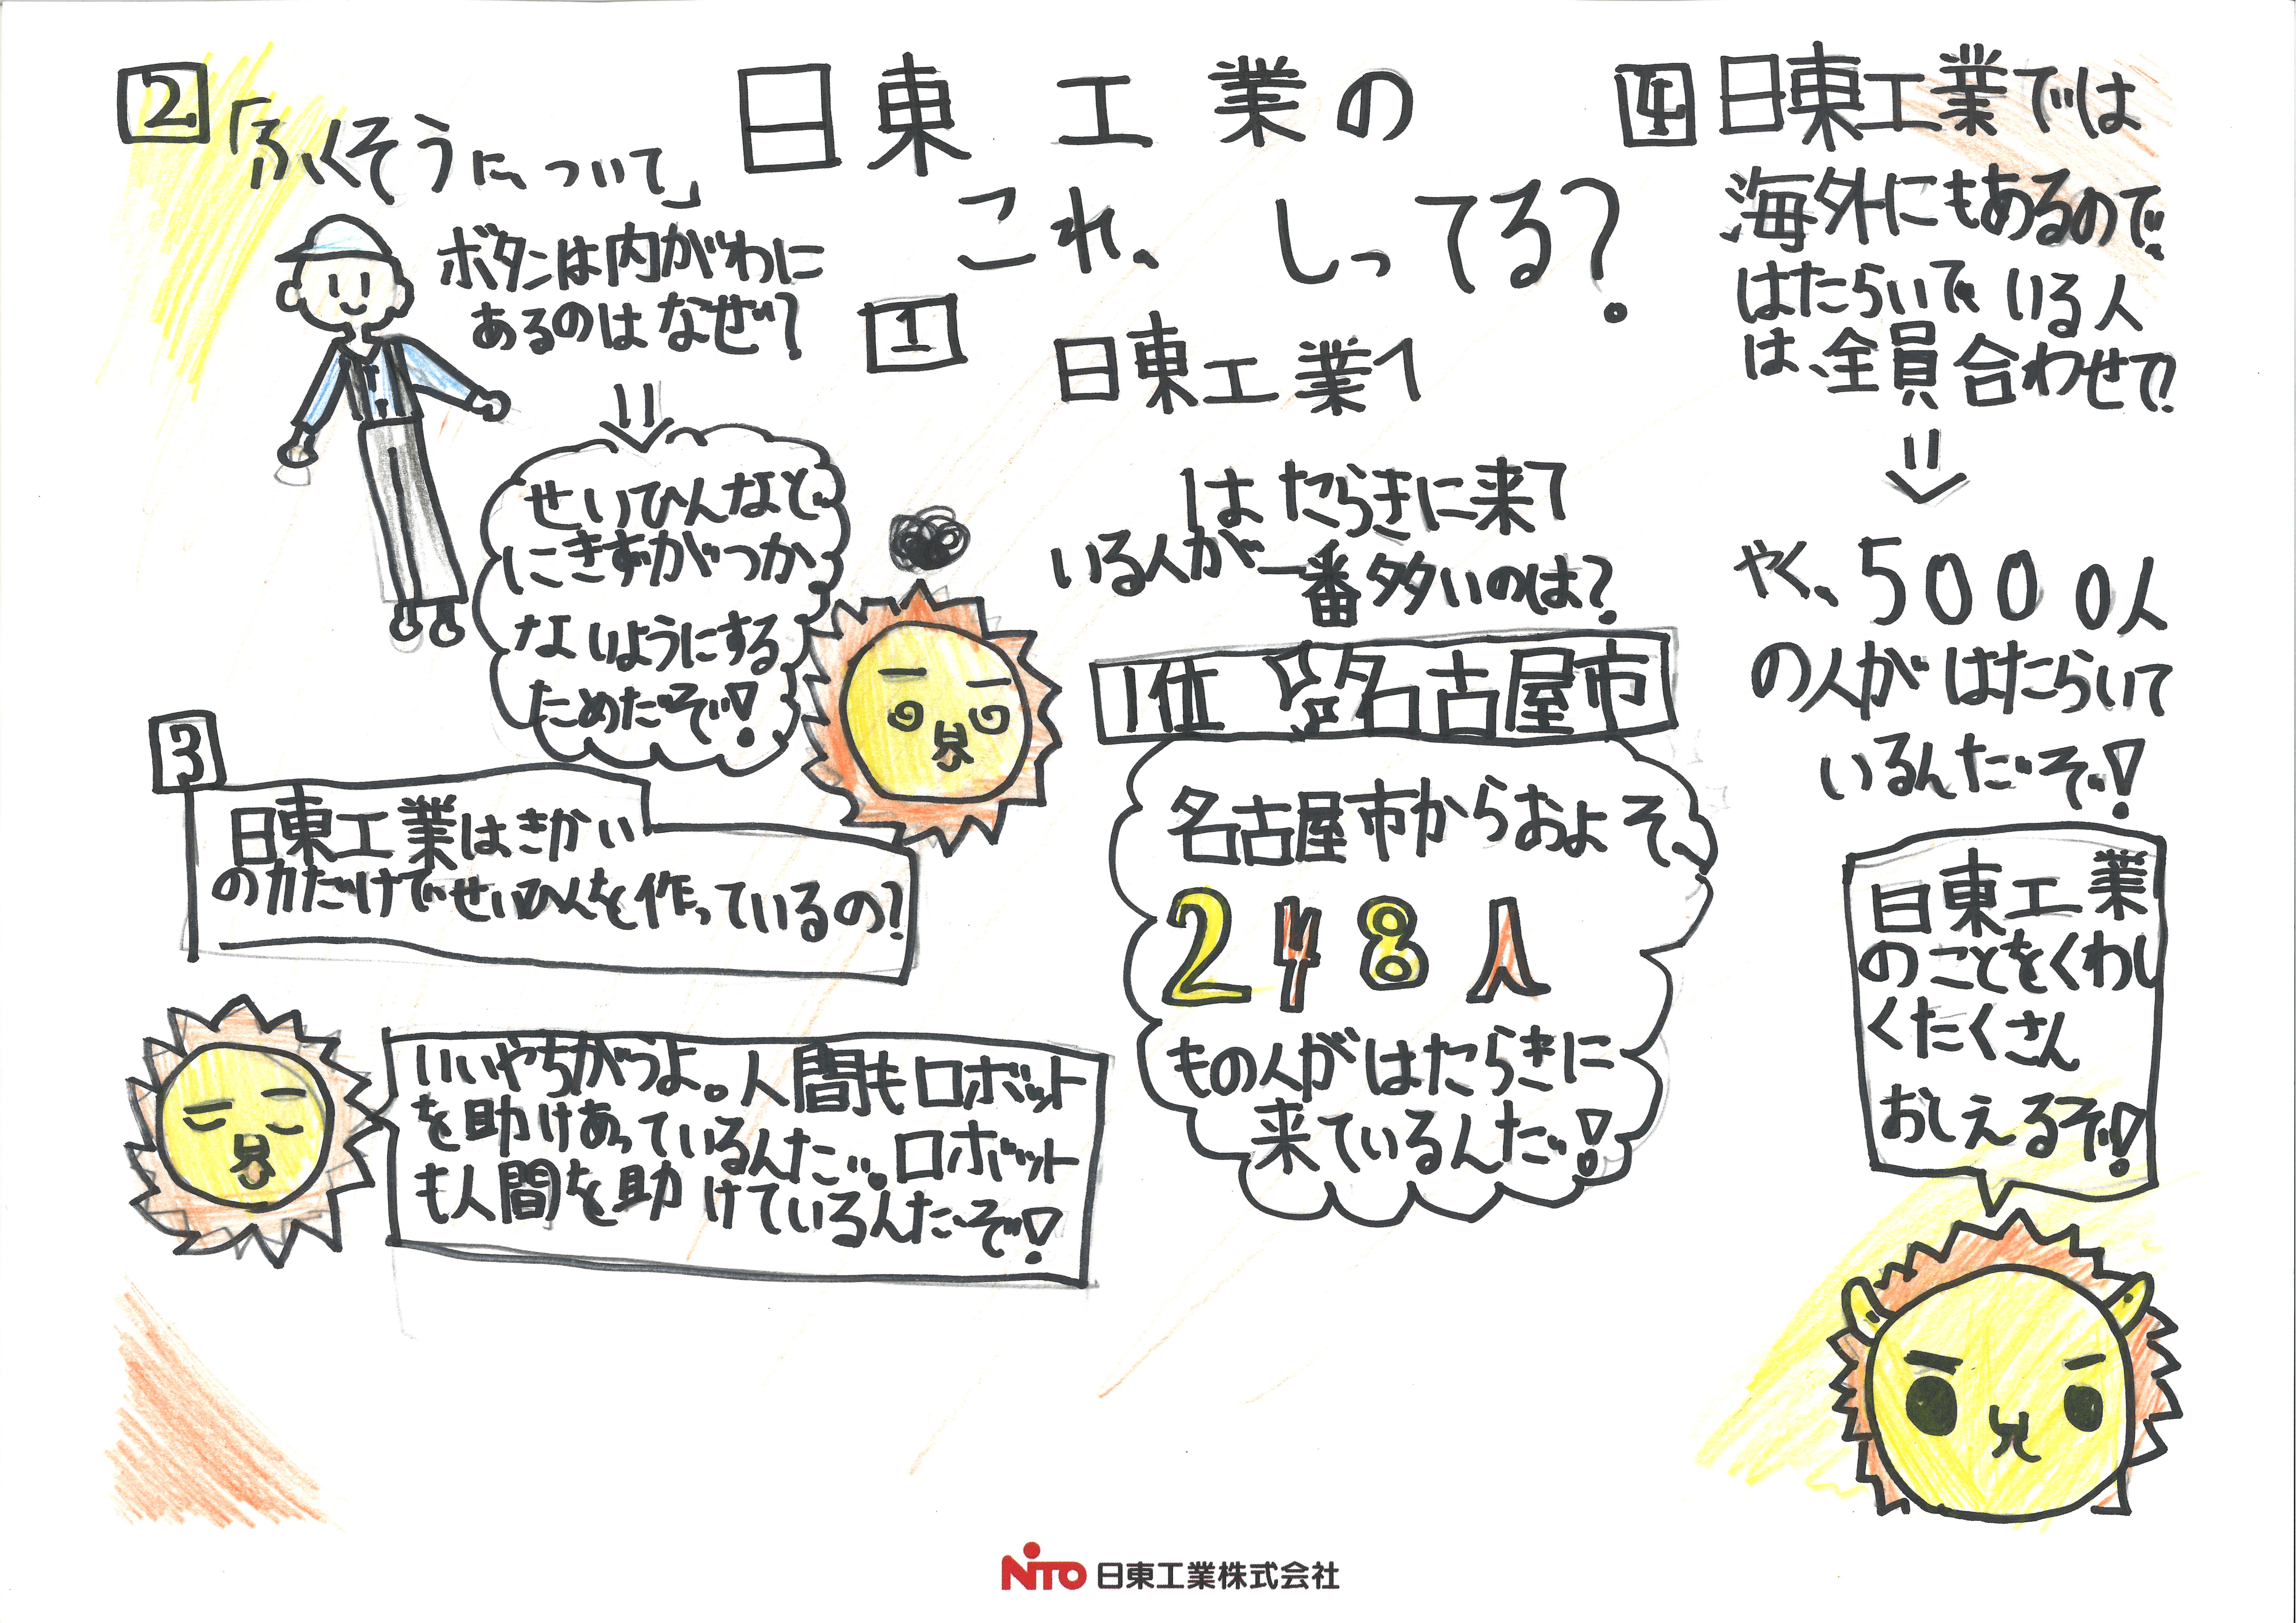 日東工業の
これ、しってる？
1
日東工業へ
はたらきに来て
いる人が一番多いのは？
1位 名古屋市
名古屋市からおよそ、
248人
もの人がはたらきに
来ているんだ！
2
「ふくそうに、ついて」
ボタンは内がわに
あるのはなぜ？
せいひんなど
にきずがつか
ないようにする
ためだぞ！
3
日東工業はきかい
の力だけでせいひんを作っているの？
いいやちがうよ。人間もロボット
を助けあっているんだ。ロボット
も人間を助けているんだぞ！
4
日東工業では
海外にもあるので、
はたらいでいる人
は、全員合わせて！
やく、5000人
の人がはたらいて
いるんだぞ！
日東工業
のことをくわし
くたくさん
おしえるぞ！
NITO 日東工業株式会社